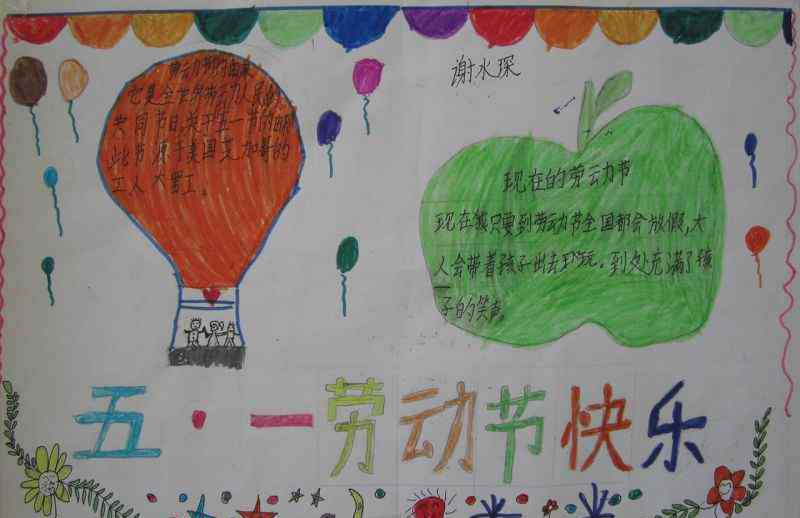 劳动节的由来
它是全世界劳动人民的
共同节日,关于五一节的由来
此节源于美国芝加哥的
工人大罢工。
谢水琛
现在的劳动节
现在能只要到劳动节全国都会放假,大
人会带着孩子出去玩玩。到处充满了孩
子的笑声。
五·一劳动节快乐